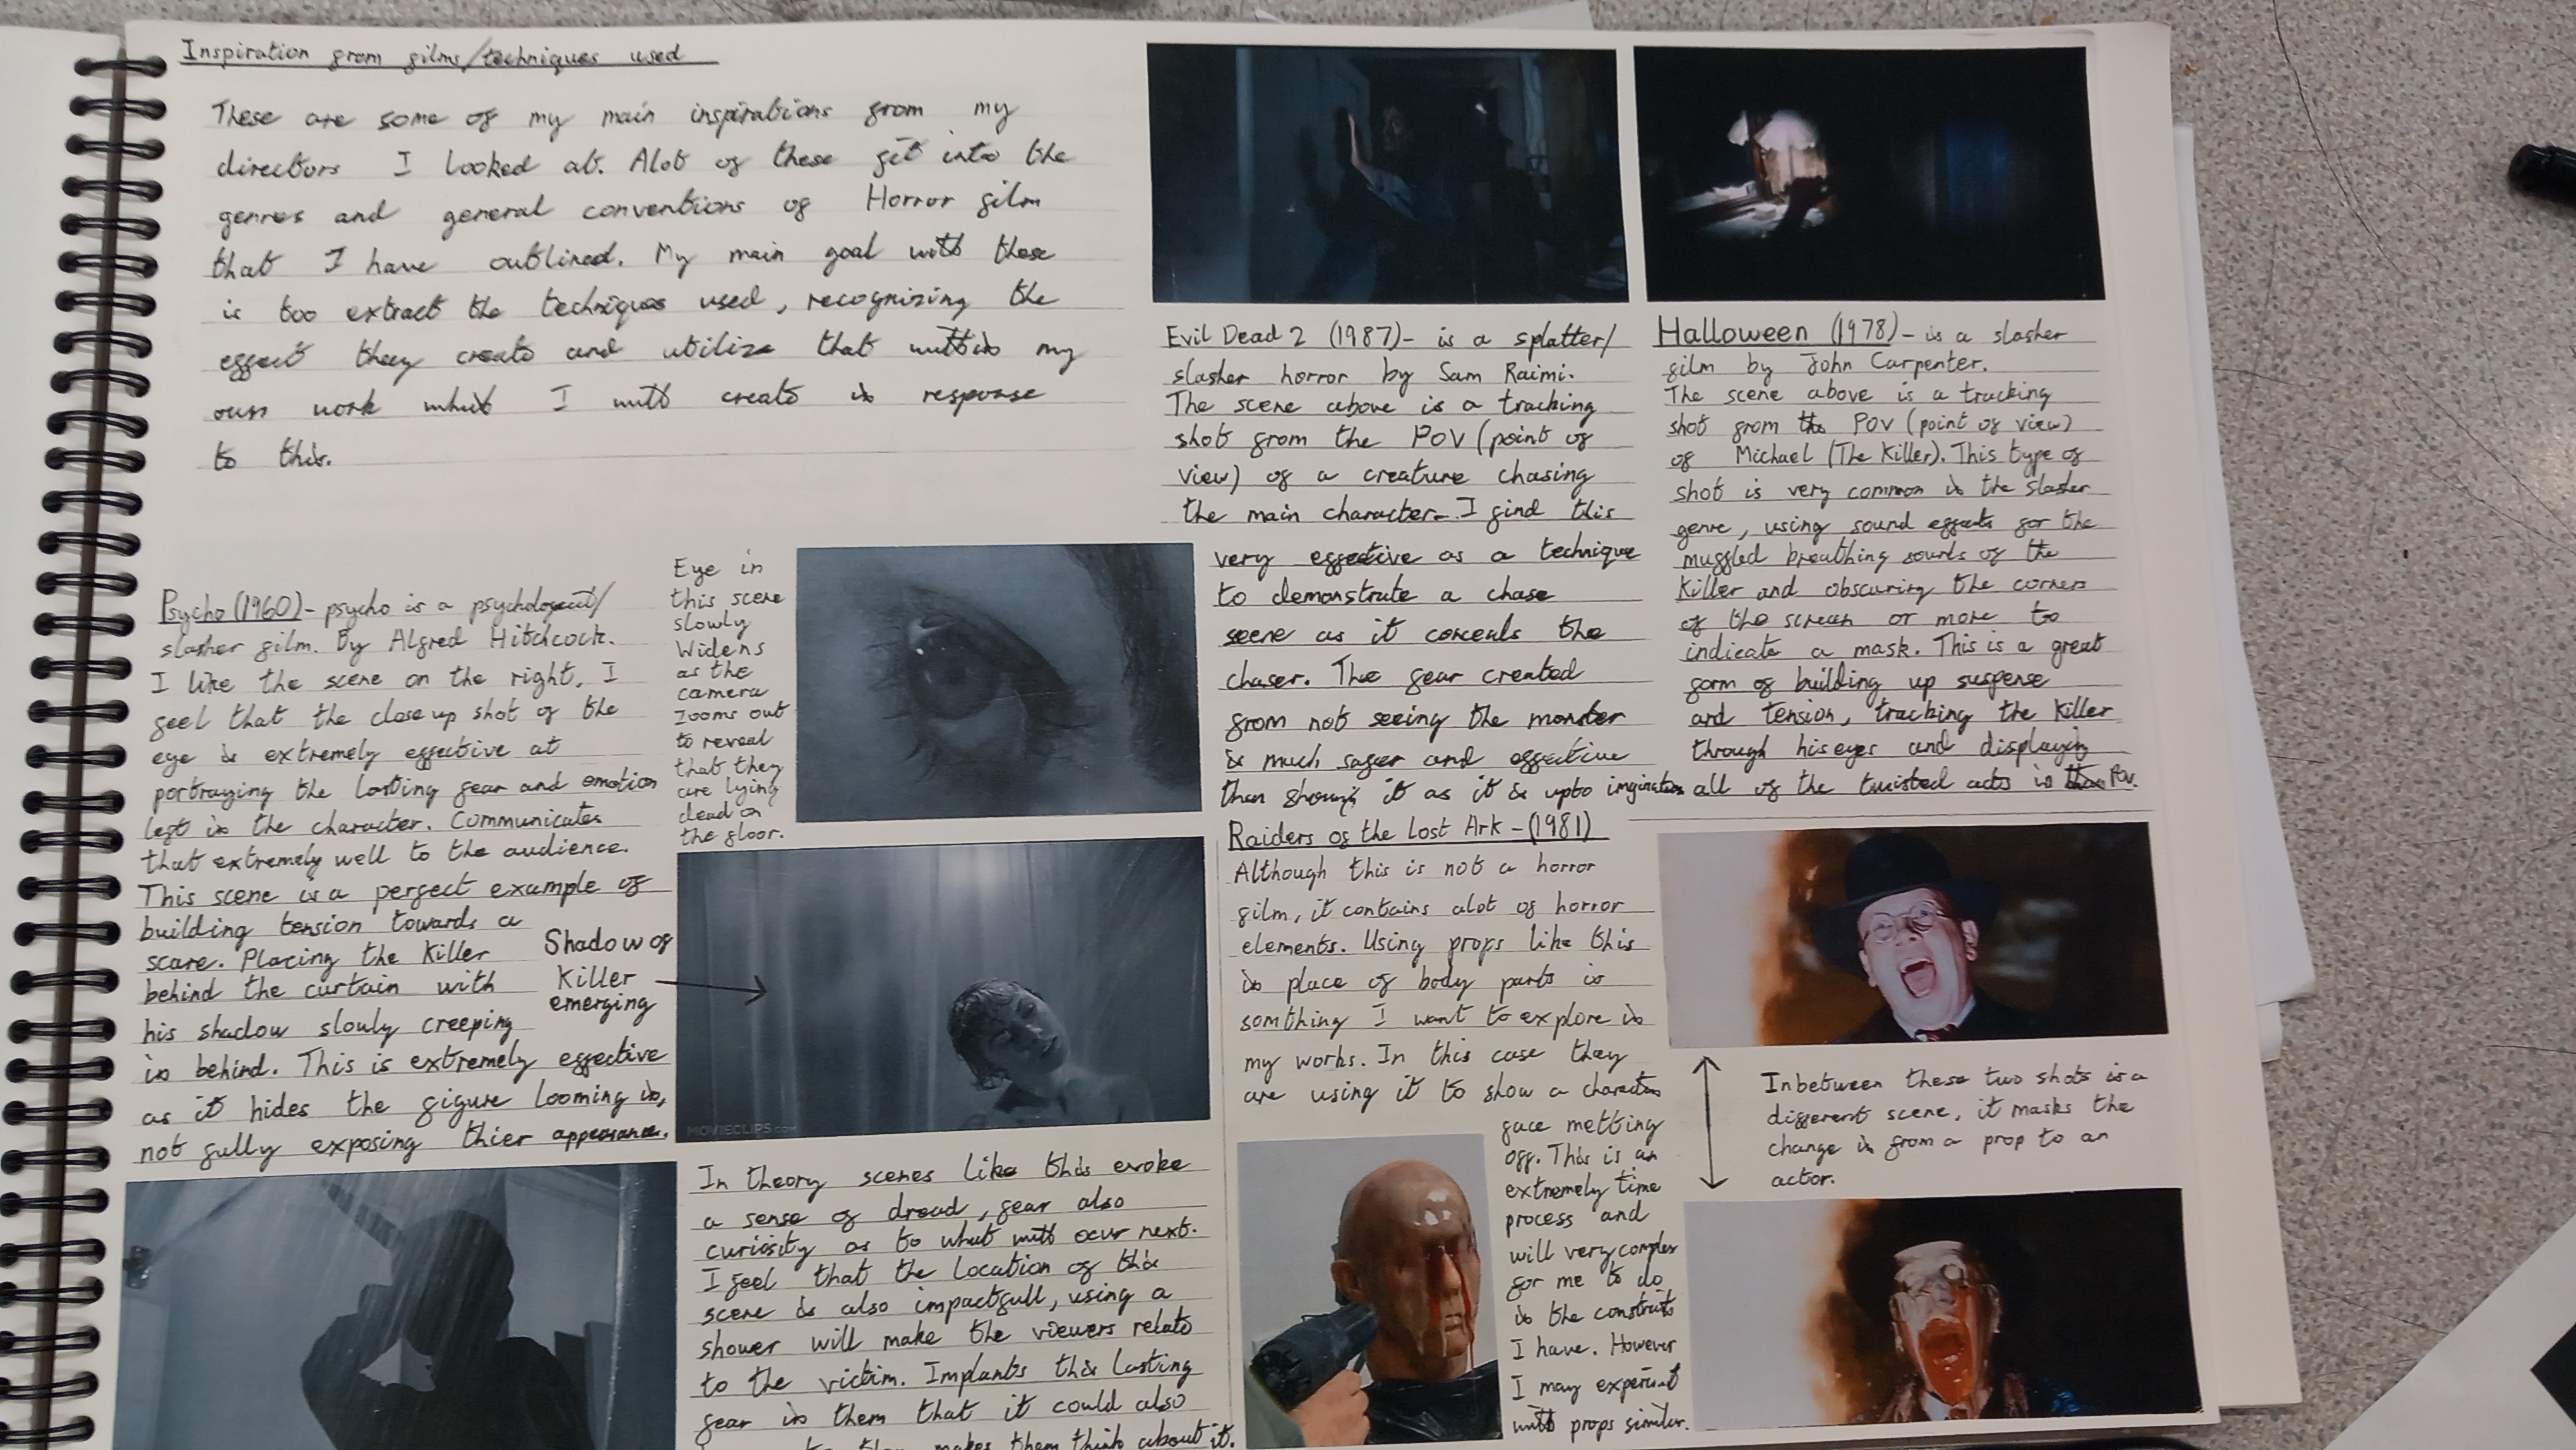 Inspiration from films/techniques used
These are some of my main inspirations from my
directors I looked at. Alot of these fit into the
genres and general conventions of Horror film
that I have outlined. My main goal with these
is too extract the techniques used, recognizing the
effect they create and utilize that within my
own work which I will create in response
to this.
Psycho (1960) - psycho is a psychological/
slasher film. By Alfred Hitchcock.
I like the scene on the right. I
feel that the close up shot of the
eye is extremely effective at
portraying the lasting fear and emotion
left in the character. Communicates
that extremely well to the audience.
This scene is a perfect example of
building tension towards a
scare. Placing the killer
behind the curtain with
his shadow slowly creeping
in behind. This is extremely effective
as it hides the figure looming in,
not fully exposing thier appearance.
Shadow of
Killer
emerging
Eye in
this scene
slowly
Widens
as the
camera
zooms out
to reveal
that they
are lying
dead on
the floor.
MOVIECLIPS.com
In theory scenes like this evoke
a sense of dread, fear also
curiosity as to what will occur next.
I feel that the location of this
scene is also impactfull, using a
shower will make the viewers relate
to the victim. Implants this lasting
fear in them that it could also
makes them think about it.
Evil Dead 2 (1987) - is a splatter/
slasher horror by Sam Raimi.
The scene above is a tracking
shot from the POV (point of
view) of a creature chasing
the main character. I find this
very effective as a technique
to demonstrate a chase
scene as it conceals the
chaser. The fear created
from not seeing the monster
is much safer and effective
then showing it as it is upto imagination
Halloween (1978) - is a slasher
film by John Carpenter.
The scene above is a tracking
shot from the POV (point of view)
of Michael (The Killer). This type of
shot is very common in the slasher
genre, using sound effects for the
muffled breathing sounds of the
killer and obscuring the corners
of the screen or more to
indicate a mask. This is a great
form of building up suspense
and tension, tracking the killer
through his eyes and displaying
all of the twisted acts in POV.
Raiders of the Lost Ark - (1981)
Although this is not a horror
film, it contains alot of horror
elements. Using props like this
in place of body parts is
somthing I want to explore in
my works. In this case they
are using it to show a characters
face melting
off. This is an
extremely time
process and
will very complex
for me to do
in the constraints
I have. However
I may experiment
with props similar.
Inbetween these two shots is a
different scene, it masks the
change in from a prop to an
actor.